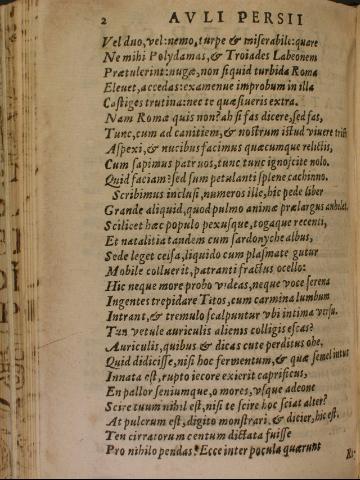 2 AVLI PERSII
Vel duo, vel: nemo, turpe & miserabile: quare
Ne mihi Polydamas, & Troiades Labeonem
Prætulerint: nugæ, non si quid turbida Roma
Eleuet, accedas: examenue improbum in illa
Castiges trutina: nec te quæsiueris extra.
Nam Romæ quis non? ah si fas dicere, sed fas,
Tunc, cum ad canitiem, & nostrum istud viuere triste
Aspexi, & nucibus facimus quæcumque relictis,
Cum sapimus patruos, tunc tunc ignoscite nolo.
Quid faciam? sed sum petulanti splene cachinno.
Scribimus inclusi, numeros ille, hic pede liber
Grande aliquid, quod pulmo animæ prælargus anhelet.
Scilicet hæc populo pexusque, togaque recenti,
Et natalitia tandem cum sardonyche albus,
Sede leget celsa, liquido cum plasmate gutur
Mobile colluerit, patranti fractus ocello:
Hic neque more probo videas, neque voce serena
Ingentes trepidare Titos, cum carmina lumbum
Intrant, & tremulo scalpuntur vbi intima versu.
Tun vetule auriculis alienis colligis escas?
Auriculis, quibus & dicas cute perditus ohe,
Quid didicisse, nisi hoc fermentum, & quæ semel intus
Innata est, rupto iecore exierit caprificus,
En pallor seniumque, o mores, vsque adeone
Scire tuum nihil est, nisi te scire hoc sciat alter?
At pulcrum est, digito monstrari, & dicier, hic est.
Ten cirratorum centum dictata fuisse
Pro nihilo pendas? Ecce inter pocula quærunt